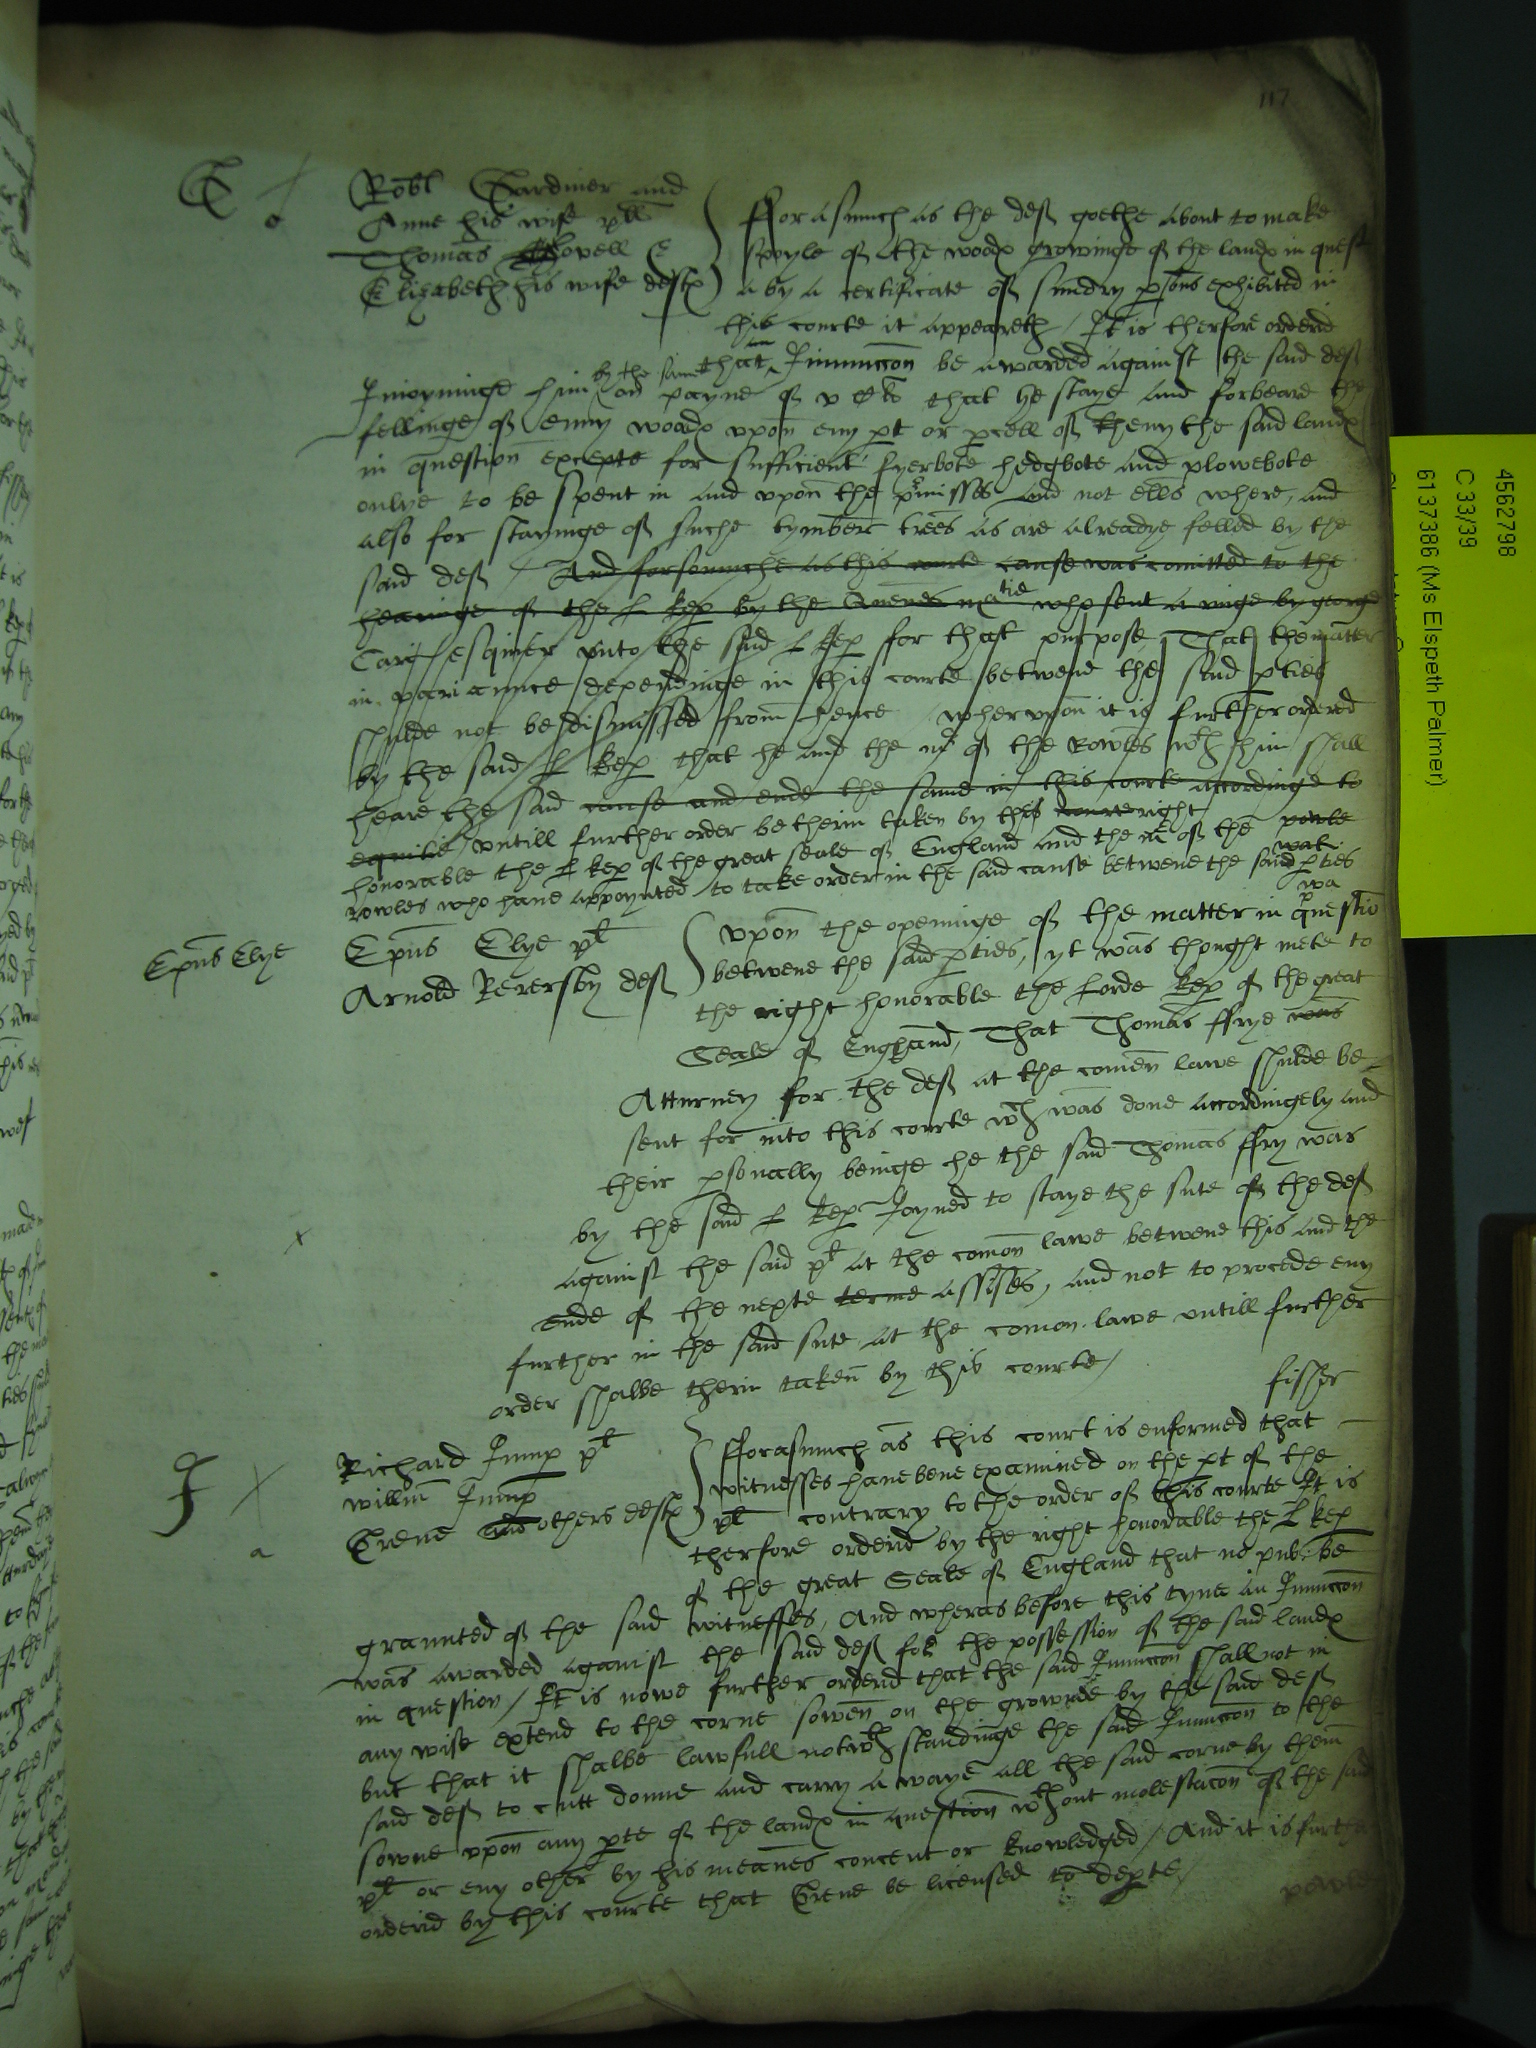 117
G
Robt Gardiner and
Anne his wife plt
Thomas Lovell &
Elizabeth his wife deftes
fforasmuch as the def goethe about to make
spoyle of the woodes growinge of the landes in quest
a by a certificate of sundry psons exhibited in
this courte it appeareth / It is therfore orderid
that an Iniunccon be awarded against the said def
Inioyninge him by the same on payne of that he staye and forbeare the
fellinge of enny woodes vpon eny pt or pcell of the said landes
in question excepte for sufficient fyerbote hedgbote and plowebote
onlye to be spent in and vpon the pmisses and not ells where, and
also for stayinge of suche tymber trees as are alreadye felled by the
said def / And forsomuche as this courte cause was comitted to the
hearinge of the L kep by the Quenes matie who sent a ringe by george
Cary esquier vnto the said L kep for that purpose, That the matter
in variaunce dependinge in this courte betwene the said pties
shulde not be dismissed from hence / wherupon it is further ordered
by the said L kep that he and the mr of the Rowles wth him shall
heare the said cause and ende the same in this courte accordinge to
equitie vntill further order be therin taken by this courte right
honorable the L kep of the great seale of England and the mr of the powle
rowles who have appoynted to take order in the said cause betwene the said pties
wat
Epus Elye
Epus Elye plt
Arnold Reresby def
vpon the openinge of the matter in question
betwene the said pties, yt was thought mete to
the right honorable the Lorde kep of the great
Seale of England, That Thomas ffrye was
Attorney for the def at the comen lawe shulde be
sent for into this courte wch was done accordingely and
their psonally beinge he the said Thomas ffry was
by the said L kep Ioyned to staye the sute of the def
against the said plt at the comon lawe betwene this and the
x
ende of the nexte terme assises, and not to procede eny
further in the said sute at the comon lawe untill further
order shalbe therin taken by this courte /
fisher
J
Richard Jump plt
willm Jump
Grene and others deftes
fforasmuch as this court is enformed that
witnesses have bene examined on the pt of the
plt contrary to the order of this courte It is
therfore orderid by the right honorable the L kep
a
of the great Seale of England that no pub. be
graunted of the said witnesses, And wheras before this tyme an Iniunccon
was awarded against the said def for the possession of the said landes
in question / It is nowe further orderid that the said Iniunccon shall not in
any wise extend to the corne sowen on the grownde by the said def
but that it shalbe lawfull notwth standinge the said Iniunccon to the
said def to cutt downe and carry awaye all the said corne by them
sowne vpon any pte of the landes in question wthout molestacon of the said
plt or eny other by his meanes concent or knowledged / And it is further
orderid by this courte that Grene be licensed to depte /
powle
4562798
C 33/39
6137386 (Ms Elspeth Palmer)